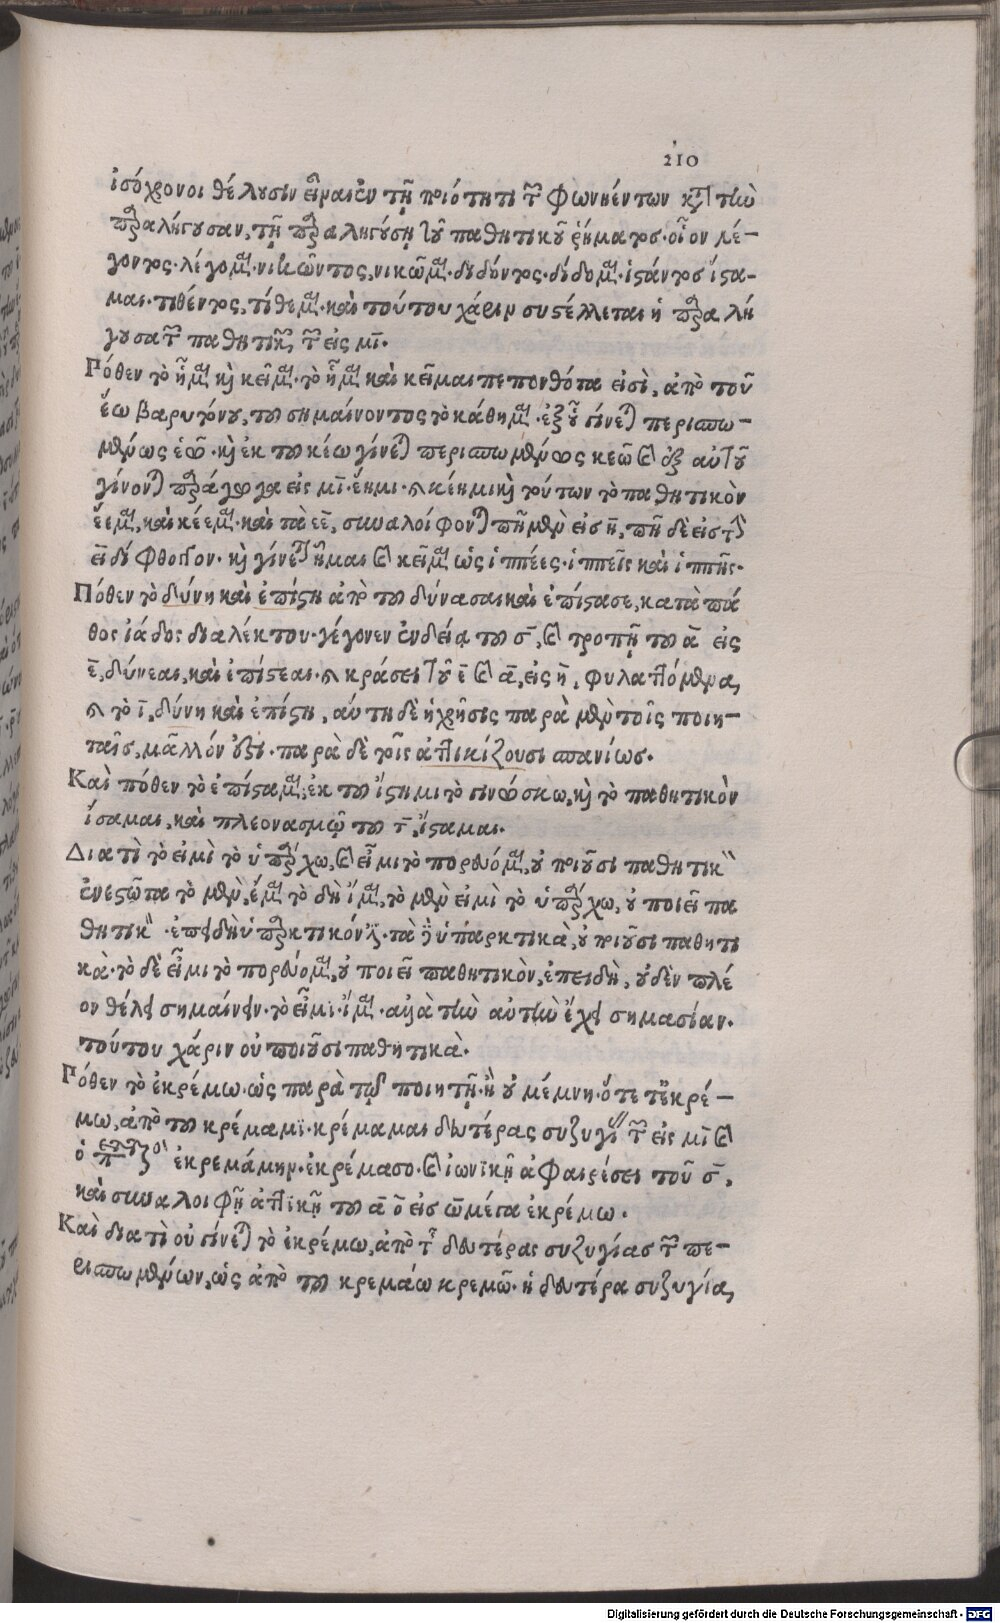 210
ἰσόχρονοι θέλουσιν εἶναι ἐν τῇ ποιότητι τῶν φωνηέντων κατὰ τὴν
παραλήγουσαν, τῇ παραληγούσῃ τοῦ παθητικοῦ ῥήματος· οἷον λέ-
γοντος· λέγομαι· νικῶντος, νικῶμαι· διδόντος· δίδομαι· ἱστάντος ἵστα-
μαι· τιθέντος, τίθεμαι· καὶ τούτου χάριν συστέλλεται ἡ παραλή
γουσα τῶν παθητικῶν τῶν εἰς μι.
Πόθεν τὸ ἧμαι καὶ κεῖμαι· τὸ ἧμαι καὶ κεῖμαι πεπονθότα εἰσὶ, ἀπὸ τοῦ
ἕω βαρυτόνου, τοῦ σημαίνοντος τὸ κάθημαι· ἐξ οὗ γίνεται περισπω-
μένως ἑῶ· καὶ ἐκ τοῦ κέω γίνεται περισπωμένως κεῶ καὶ ἐξ αὐτοῦ
γίνονται παράγωγα εἰς μι· ἕημι· καὶ κέημι καὶ τούτων τὸ παθητικὸν
ἕεμαι, καὶ κέεμαι· καὶ τὰ εε, συναλοίφονται πῆ μὲν εἰς η, πῆ δὲ εἰς τὴν
ει δίφθογγον· καὶ γίνεται ἧμαι καὶ κεῖμαι ὡς ἱππέες· ἱππεῖς καὶ ἱππῆς.
Πόθεν τὸ δύνη καὶ ἐπίστη ἀπὸ τοῦ δύνασαι καὶ ἐπίστασαι, κατὰ πά
θος ἰάδος διαλέκτου· γέγονεν ἐνδείᾳ τοῦ σ, καὶ τροπῇ τοῦ α εἰς
ε, δύνεαι, καὶ ἐπίστεαι· καὶ κράσει τοῦ ε καὶ α, εἰς η, φυλαττόμενα,
καὶ τὸ ι, δύνη καὶ ἐπίστη, αὕτη δὲ ἡ χρῆσις παρὰ μὲν τοῖς ποιη-
ταῖς, μᾶλλόν ἐστι· παρὰ δὲ τοῖς ἀττικίζουσι σπανίως.
Καὶ πόθεν τὸ ἐπίσταμαι; ἐκ τοῦ ἴσημι τὸ γινώσκω, καὶ τὸ παθητικὸν
ἴσαμαι, καὶ πλεονασμῷ τοῦ τ, ἴσταμαι.
Διατὶ τὸ εἰμὶ τὸ ὑπάρχω, καὶ εἶμι τὸ πορεύομαι, οὐ ποιοῦσι παθητικὰ
ἐνεστῶτα τὸ μὲν, ἔμαι τὸ δὴ ἴμαι, τὸ μὲν εἰμὶ τὸ ὑπάρχω, οὐ ποιεῖ πα
θητικὰ· ἐπειδὴ ὑπαρκτικόν ἐστι· τὰ γὰρ ὑπαρκτικὰ, οὐ ποιοῦσι παθητι
κὰ· τὸ δὲ εἶμι τὸ πορεύομαι, οὐ ποιεῖ παθητικὸν, ἐπειδὴ, οὐδὲν πλέ
ον θέλει σημαίνειν· τὸ εἶμι· ἴμαι· ἀλλὰ τὴν αὐτὴν ἔχει σημασίαν.
τούτου χάριν οὐ ποιοῦσι παθητικὰ.
Πόθεν τὸ ἐκρέμω· ὡς παρὰ τῷ ποιητῇ· ἢ οὐ μέμνη· ὅτε τ' ἐκρέ-
μω, ἀπὸ τοῦ κρέμαμι· κρέμαμαι δευτέρας συζυγίας τῶν εἰς μι καὶ
ὁ ἐκρεμάμην· ἐκρέμασο· καὶ ἰωνικῇ ἀφαιρέσει τοῦ σ,
καὶ συναλοιφῇ ἀττικῇ τοῦ α ο εἰς ω μέγα ἐκρέμω.
Καὶ διατὶ οὐ γίνεται τὸ ἐκρέμω, ἀπὸ τῆς δευτέρας συζυγίας τῶν πε-
ρισπωμένων, ὡς ἀπὸ τοῦ κρεμάω κρεμῶ· ἡ δευτέρα συζυγία,
Digitalisierung gefördert durch die Deutsche Forschungsgemeinschaft - DFG